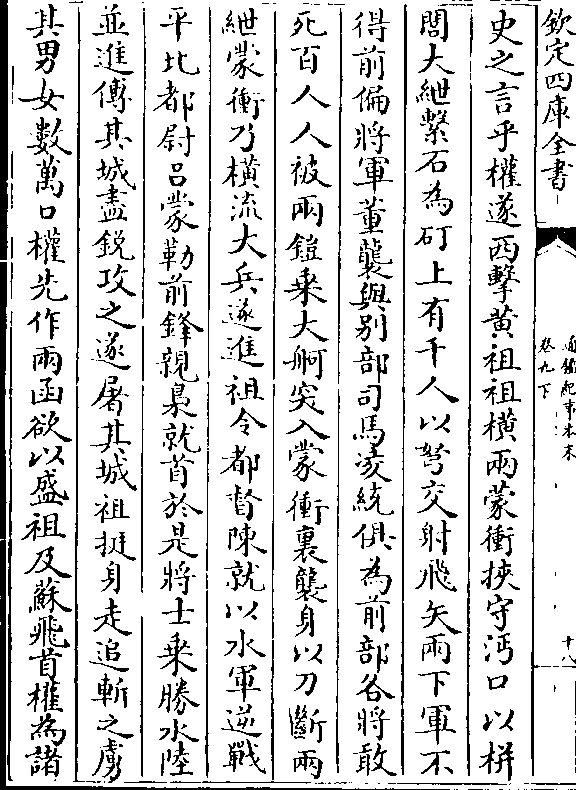 欽定四庫全書
通鑑紀事本末
卷九下
十八
史之言乎權遂西擊黄祖祖横兩蒙衝挾守沔口以栟
閭大紲繫石為矴上有千人以弩交射飛矢雨下軍不
得前偏將軍董襲與别部司馬凌統俱為前部各將敢
死百人人被兩鎧乗大舸突入蒙衝裏襲身以刀斷兩
紲蒙衝乃横流大兵遂進祖令都督陳就以水軍逆戰
平北都尉吕蒙勒前鋒親梟就首於是將士乗勝水陸
並進傅其城盡鋭攻之遂屠其城祖挺身走追斬之虜
其男女數萬口權先作兩函欲以盛祖及蘇飛首權為諸